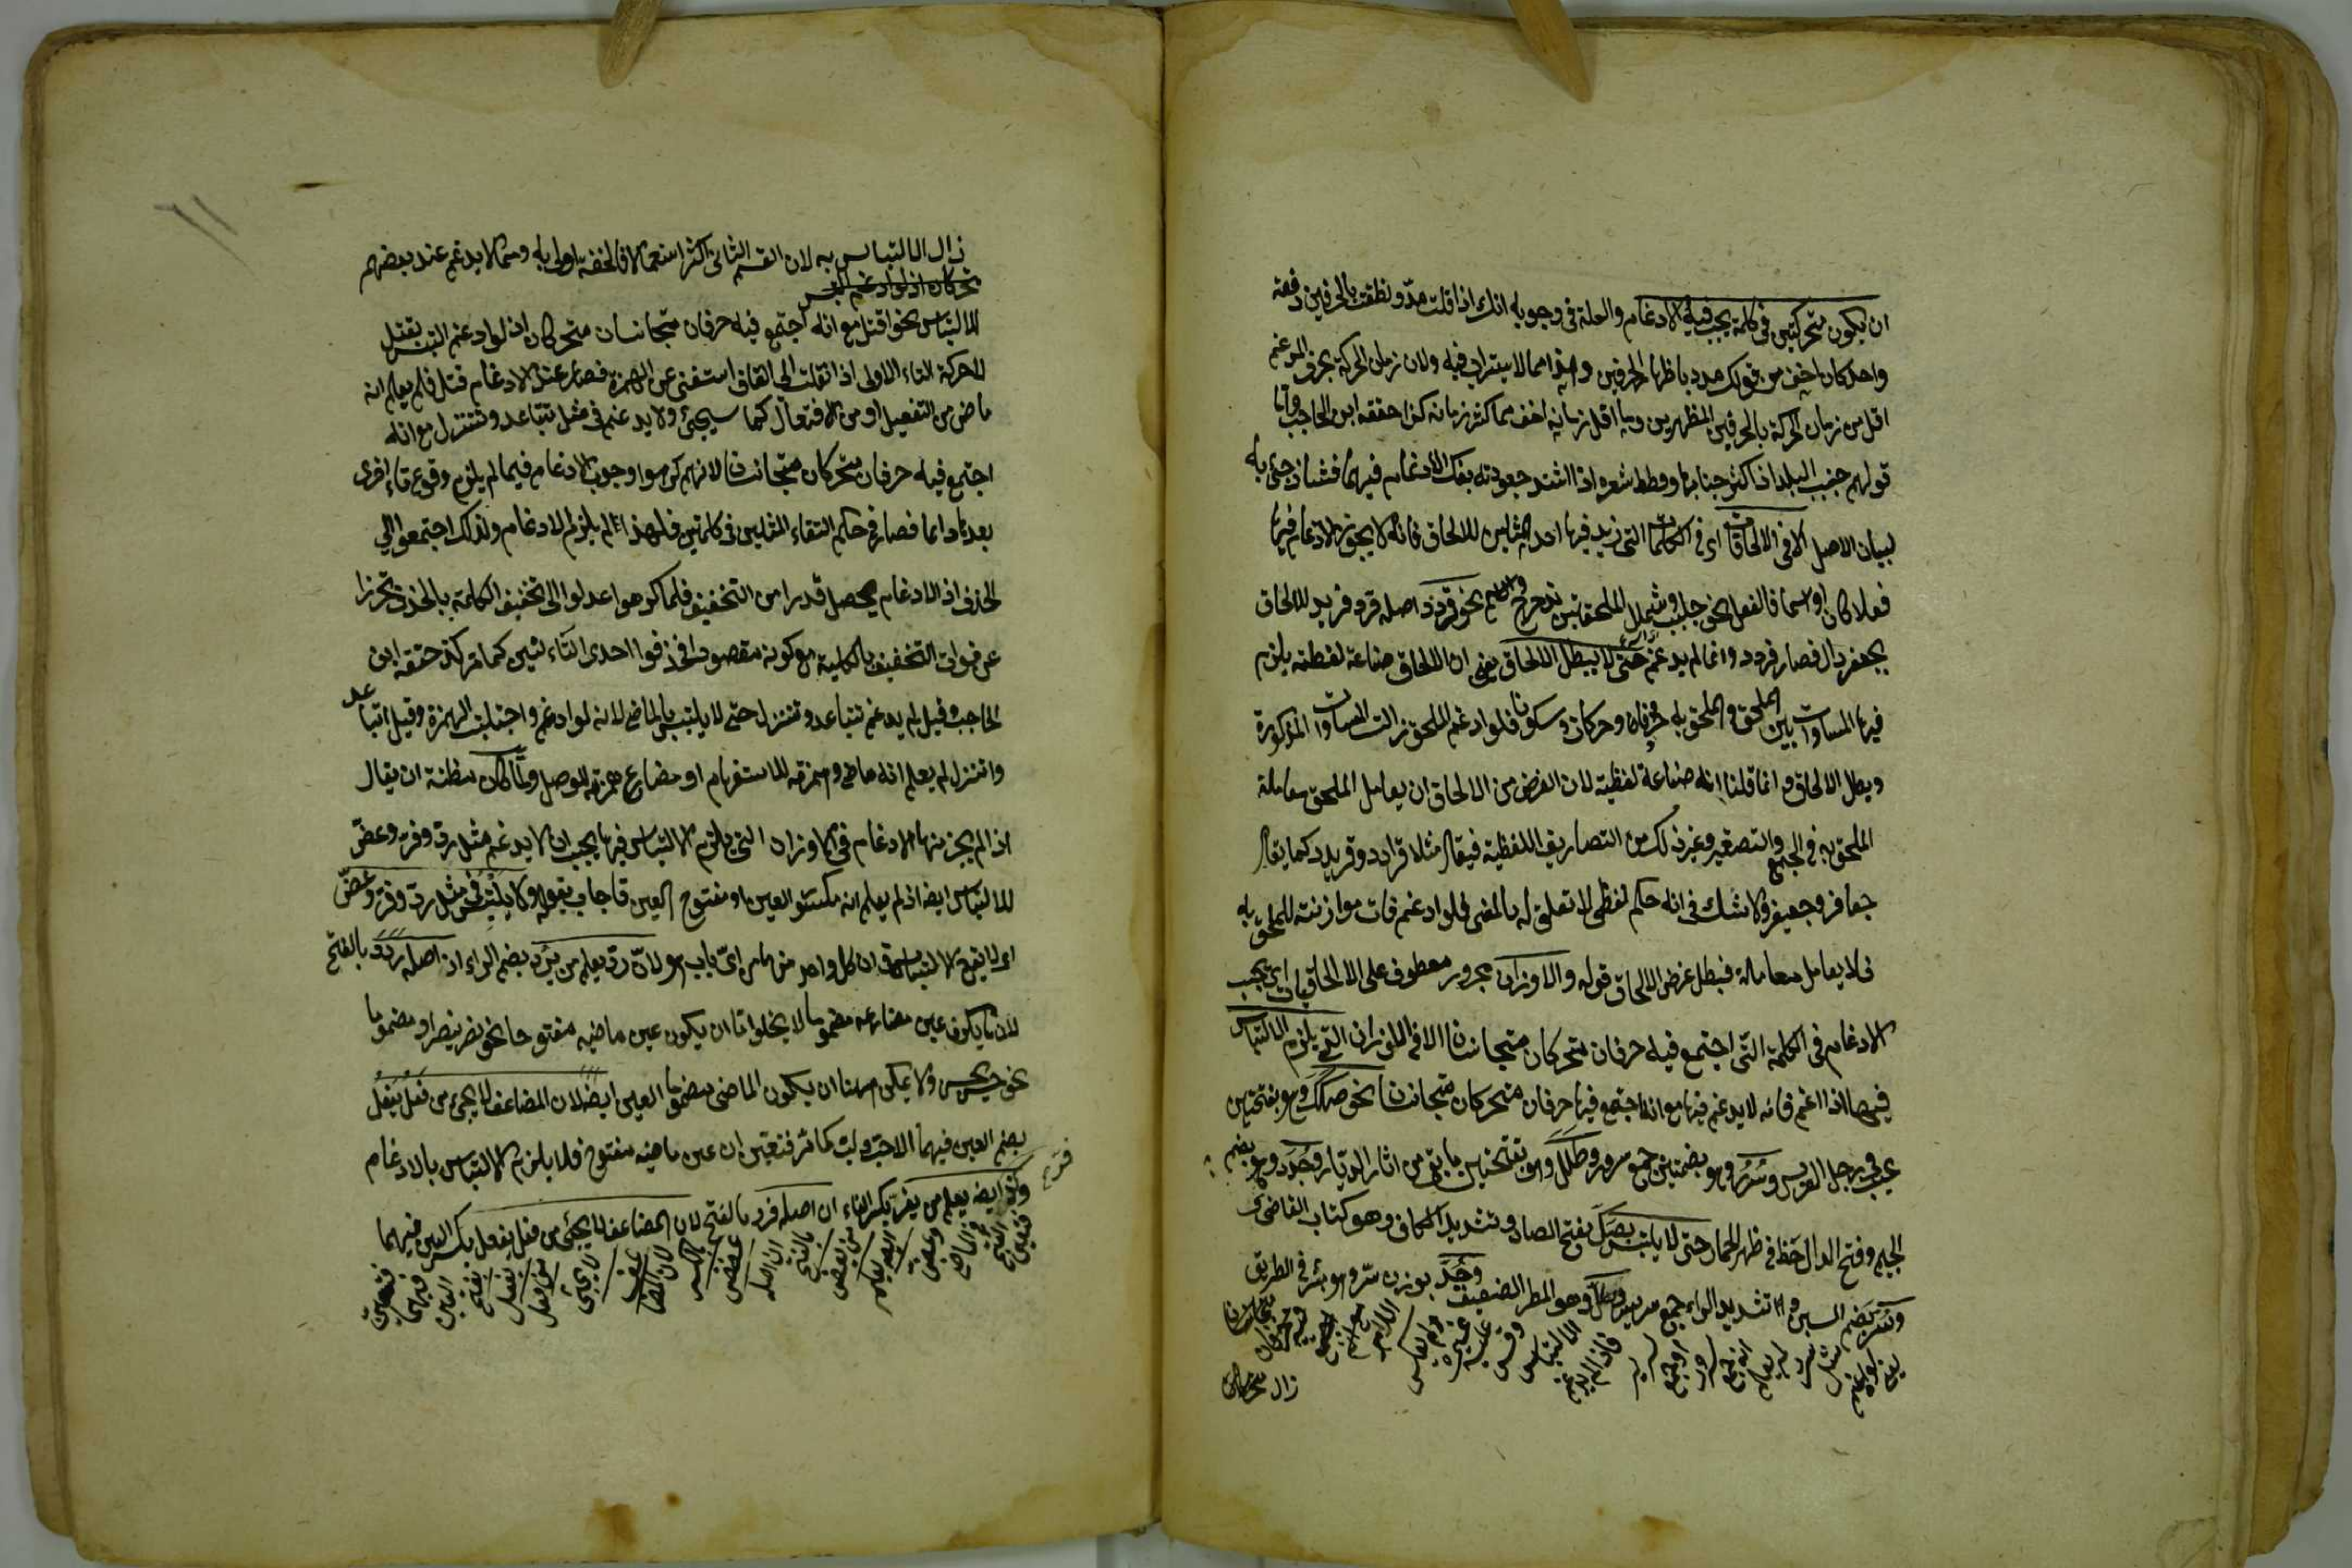 ان يكون متحركتين فى كلمة يجب فيه الادغام والعلة فى وجوبه انك اذا قلت مدّ ونطقت بالحرفين دفعة
واحدة كان اخف من قولك مدد باظهار الحرفين وهذا مما لا يستراب فيه ولان زمان الحركة بحرف المدغم
اقل من زمان الحركة بالحرفين المظهرين وما اقل زمانه اخف مما كثر زمانه كذا حققه ابن الحاجب واما
قولهم ضبب البلد اذا كثر ضبابها وقطط شعره اذا اشتد جعودته بفك الادغام فيهما فشاذ جئ به
لبيان الاصل الا فى الالحاقات اى فى الكلمات التى زيد فيها احد المثلين للالحاق فانه لا يجوز الادغام فيها
فعلا كان او اسما فالفعل نحو جلبب وشملل الملحقتين بدحرج والاسم نحو قردد اصله قرد فزيد للالحاق
بجعفر دال فصار قردد وانما لم يدغم حتى لا يبطل الالحاق يعنى ان الالحاق صناعة لفظية يلزم
فيها المساوات بين الملحق والملحق به حرفا وحركات وسكونا فلو ادغم الملحق زالت المساوات المذكورة
وبطل الالحاق وانما قلنا انه صناعة لفظية لان الغرض من الالحاق ان يعامل الملحق معاملة
الملحق به فى الجمع والتصغير وغير ذلك من التصاريف اللفظية فيقال مثلا قرادد وقريدد كما يقال
جعافر وجعيفر ولا شك فى انه حكم لفظى لا تعلق له بالمعنى فلو ادغم فات موازنته للملحق به
فلا يعامل معاملة فبطل غرض الالحاق قوله والاوزان مجرور معطوف على الالحاقيات اى يجب
الادغام فى الكلمة التى اجتمع فيه حرفان متحركان متجانسان الا فى الاوزان التى يلزم الالتباس
فيها اذا ادغم فانه لا يدغم فيها مع انه اجتمع فيها حرفان متحركان متجانسان نحو صكك وهو بفتحتين
عيب فى رجل الفرس وسرر وهو بضمتين جمع سرير وطلل وهو بفتحتين ما بقى من اثار الديار وجدد وهو بضم
الجيم وفتح الدال خط فى ظهر الحمار حتى لا يلتبس بصك بفتح الصاد وتشديد الكاف وهو كتاب القاضى
وسر بضم السين وتشديد الراء جمع سرير وطل وهو المطر الضعيف وجد بوزن سر وهو بئر فى الطريق
زال الالتباس به لان القسم الثانى اكثر استعمالا فالخفة اولى به ومما لا يدغم عند بعضهم
متحركان اذ لو ادغم التبس
للالتباس نحو اقتتل مع انه اجتمع فيه حرفان متجانسان متحركان اذ لو ادغم التبس بقتل
لان حركة التاء الاولى اذا نقلت الى القاف استغنى عن الهمزة فصار عند الادغام قتل فلم يعلم انه
ماض من التفعيل او من الافتعال كما سيجئ ولا يدغم فى مثل تتباعد وتتنزل مع انه
اجتمع فيه حرفان متحركان متجانسان لانهم كرهوا وجوب الادغام فيما لم يلزم وقوع تاء اخرى
بعدها دائما فصار فى حكم التقاء المثلين فى كلمتين فلهذا لم يلزم الادغام ولذلك اجتمعوا الى
الحذف اذ الادغام يحصل قدرا من التخفيف فلما كرهوا عدلوا الى تخفيف الكلمة بالحذف تحرزا
عن فوات التخفيف بالكلية مع كونه مقصودا فحذفوا احدى التاءين كما مر كذا حققه ابن
الحاجب وقيل لم يدغم تتباعد وتتنزل حتى لا يلتبس بالماضى لانه لو ادغم واجتلبت الهمزة وقيل اتباعد
واتنزل لم يعلم انه ماض وهمزته للاستفهام او مضارع همزته للوصل ولما كان مظنة ان يقال
اذا لم يجز منها الادغام فى الاوزان التى يلزم الالتباس فيها يجب ان لا يدغم مثل رد وفر وعض
للالتباس ايضا اذ لم يعلم انه مكسور العين او مفتوح العين فاجاب بقوله ولا يلتبس فى مثل رد وفر وعض
اى لا يقع الالتباس فى ان كل واحد منها من اى باب هو لان رد يعلم من يرد بضم الراء ان اصله ردد بالفتح
لان ما يكون عين مضارعه مضموما لا يخلو اما ان يكون عين ماضيه مفتوحا نحو نصر ينصر او مضموما
نحو حسن يحسن ولا يمكن ههنا ان يكون الماضى مضموم العين ايضا لان المضاعف لا يجئ من فعل يفعل
بضم العين فيهما الا حب ولب كما مر فتعين ان عين ماضيه مفتوح فلا يلزم الالتباس بالادغام
وفر ايضا يعلم من يفر بكسر الفاء ان اصله فرر بالفتح لان المضاعف لا يجئ من فعل يفعل بكسر العين فيهما